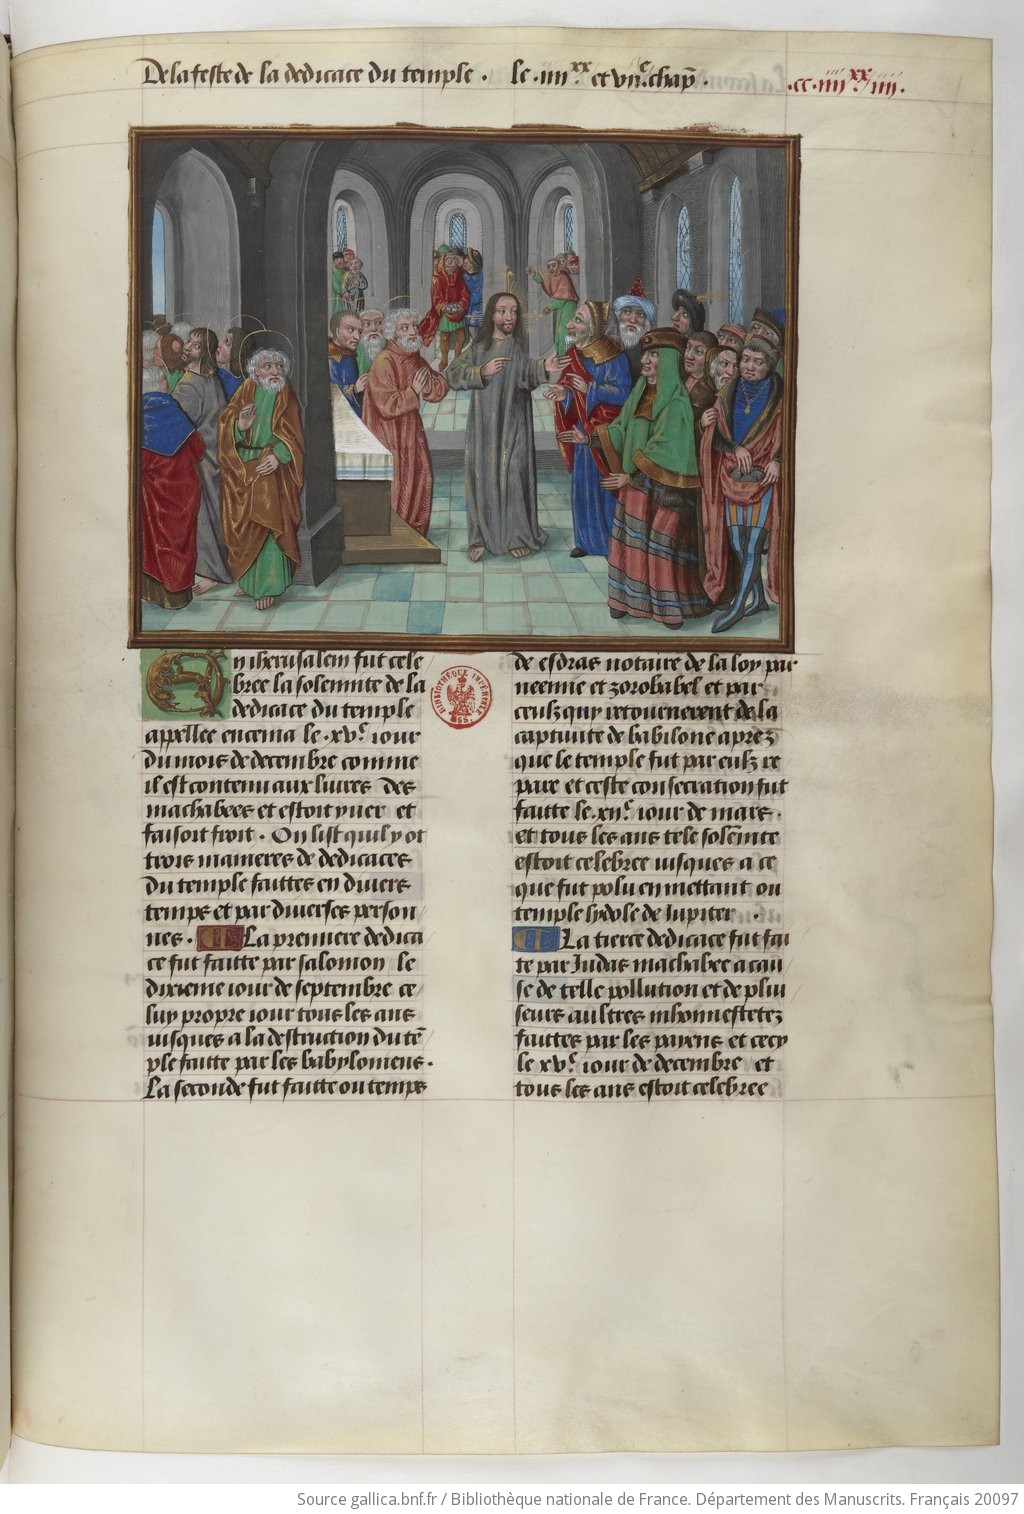 De la feste de la dedicace du temple . le .iiiixx. et viie. chap̄ .
.cc.iiiixx iiii.
En iherusalem fut cele
bree la solennite de la
dedicace du temple
appellee encenia le .xve. iour
du mois de decembre comme
il est contenu aux liures des
machabees et estoit yuer et
faisoit froit . On list quil y ot
trois manieres de dedicaces
du temple faittes en diuers
temps et par diuerses person
nes . La premiere dedica
ce fut faitte par salomon le
dixieme iour de septembre ce
luy propre iour tous les ans
iusques a la destruction du tē
ple faitte par les babyloniens .
La seconde fut faitte ou temps
de esdras notaire de la loy par
neemie et zorobabel et par
ceulz quy retournerent de la
captiuite de babilone aprez
que le temple fut par eulz re
pare et ceste consecration fut
faitte le .xiie. iour de mars .
et tous les ans tele solēnite
estoit celebree iusques a ce
que fut polu en mettant ou
temple lydole de Iupiter .
La tierce dedicace fut fai
te par Iudas machabee a cau
se de telle pollution et de pluī
seurs aultres inhonnestetez
faittes par les payens et cecy
le xve. iour de decembre et
tous les ans estoit celebree
BIBLIOTHÈQUE IMPÉRIALE
MSS.
Source gallica.bnf.fr / Bibliothèque nationale de France. Département des Manuscrits. Français 20097